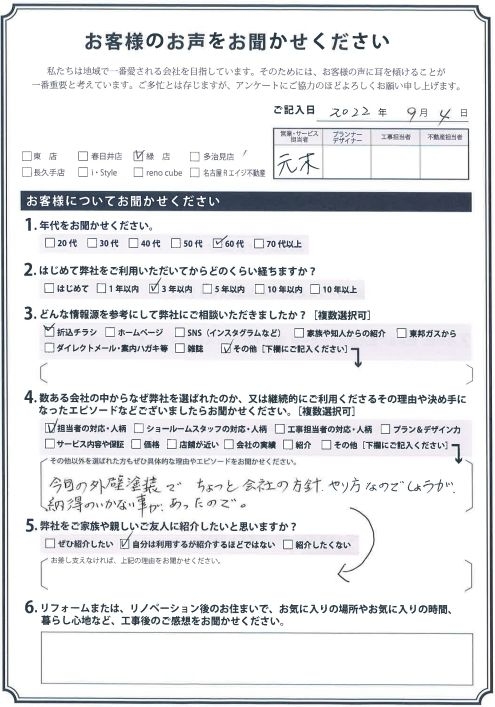 お客様のお声をお聞かせください
私たちは地域で一番愛される会社を目指しています。そのためには、お客様の声に耳を傾けることが
一番重要と考えています。ご多忙とは存じますが、アンケートにご協力のほどよろしくお願い申し上げます。
ご記入日 2022 年 9 月 4 日
営業・サービス担当者 プランナーデザイナー 工事担当者 不動産担当者
元木
東 店 春日井店 緑 店 多治見店
長久手店 i・Style reno cube 名古屋Rエイジ不動産
お客様についてお聞かせください
1. 年代をお聞かせください。
20代 30代 40代 50代 60代 70代以上
2. はじめて弊社をご利用いただいてからどのくらい経ちますか？
はじめて 1年以内 3年以内 5年以内 10年以内 10年以上
3. どんな情報源を参考にして弊社にご相談いただきましたか？［複数選択可］
折込チラシ ホームページ SNS（インスタグラムなど） 家族や知人からの紹介 東邦ガスから
ダイレクトメール・案内ハガキ等 雑誌 その他［下欄にご記入ください］
4. 数ある会社の中からなぜ弊社を選ばれたのか、又は継続的にご利用くださるその理由や決め手に
なったエピソードなどございましたらお聞かせください。［複数選択可］
担当者の対応・人柄 ショールームスタッフの対応・人柄 工事担当者の対応・人柄 プラン＆デザイン力
サービス内容や保証 価格 店舗が近い 会社の実績 紹介 その他［下欄にご記入ください］
その他以外を選ばれた方もぜひ具体的な理由やエピソードをお聞かせください。
今回の外壁塗装で ちょっと会社の方針、やり方なのでしょうが、
納得のいかない事が、あったので。
5. 弊社をご家族や親しいご友人に紹介したいと思いますか？
ぜひ紹介したい 自分は利用するが紹介するほどではない 紹介したくない
お差し支えなければ、上記の理由をお聞かせください。
6. リフォームまたは、リノベーション後のお住まいで、お気に入りの場所やお気に入りの時間、
暮らし心地など、工事後のご感想をお聞かせください。